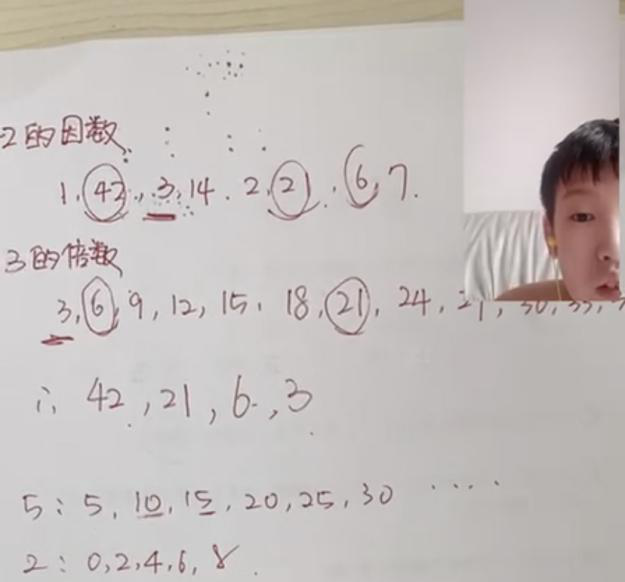 2的因数
1,42,3,14.2,21,6,7.
3的倍数
3,6,9,12,15,18,21,24,27,30,33,
∴ 42,21,6,3
5:5,10,15,20,25,30 ....
2:0,2,4,6,8.